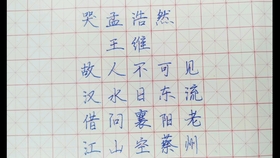 哭孟浩然
王维
故人不可见
汉水日东流
借问襄阳老
江山空蔡州